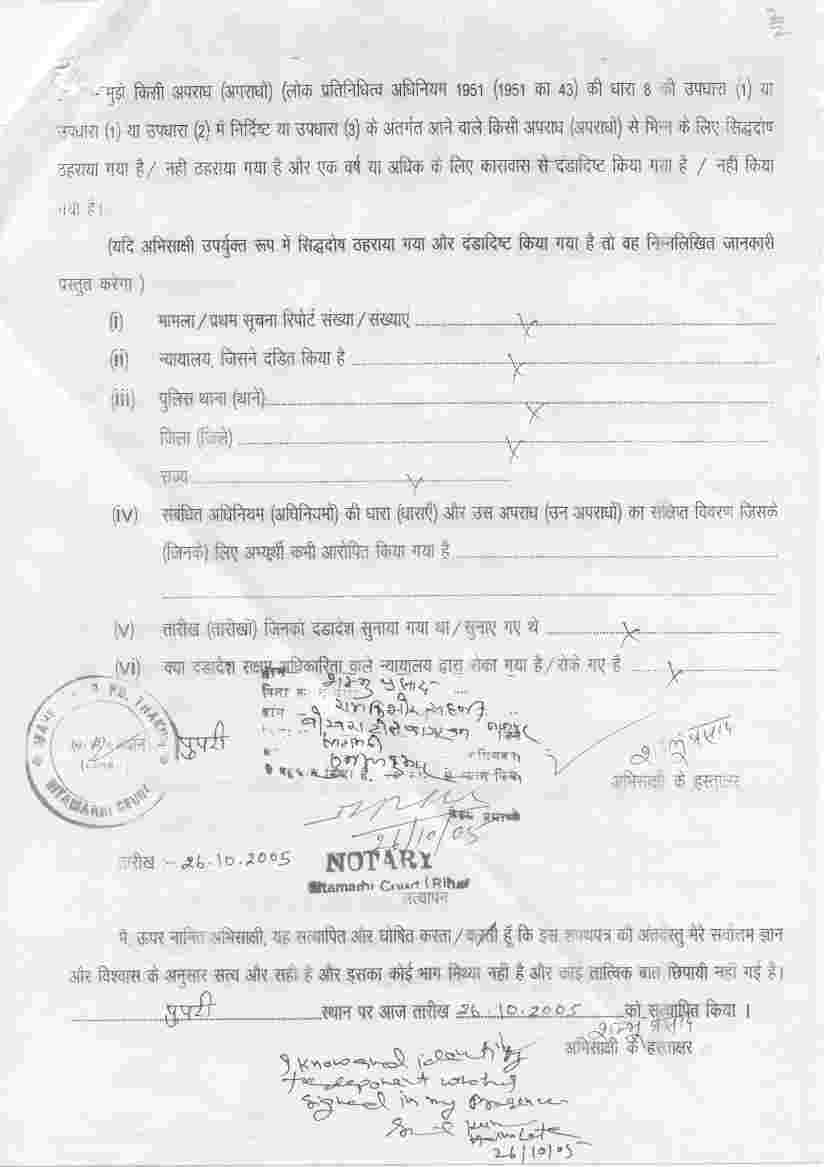 2
मुझे किसी अपराध (अपराधों) (लोक प्रतिनिधित्व अधिनियम 1951 (1951 का 43) की धारा 8 की उपधारा (1) या
उपधारा (1) या उपधारा (2) में निर्दिष्ट या उपधारा (3) के अंतर्गत आने वाले किसी अपराध (अपराधों) से भिन्न के लिए सिद्धदोष
ठहराया गया है / नहीं ठहराया गया है और एक वर्ष या अधिक के लिए कारावास से दंडादिष्ट किया गया है / नहीं किया
गया है।
(यदि अभिसाक्षी उपर्युक्त रूप में सिद्धदोष ठहराया गया और दंडादिष्ट किया गया है तो वह निम्नलिखित जानकारी
प्रस्तुत करेगा )
(i) मामला / प्रथम सूचना रिपोर्ट संख्या / संख्याएं x
(ii) न्यायालय, जिसने दंडित किया है x
(iii) पुलिस थाना (थाने) x
जिला (जिले) x
राज्य x
(iv) संबंधित अधिनियम (अधिनियमों) की धारा (धाराएँ) और उस अपराध (उन अपराधों) का संक्षिप्त विवरण जिसके
(जिनके) लिए अभ्यर्थी कभी आरोपित किया गया है
(v) तारीख (तारीखों) जिनको दंडादेश सुनाया गया था / सुनाए गए थे x
(vi) क्या दंडादेश सक्षम अधिकारिता वाले न्यायालय द्वारा रोका गया है / रोके गए है x
PD. THAKUR
SITAMARHI COURT
पुपरी
शम्भु प्रसाद
शम्भु प्रसाद
अभिसाक्षी के हस्ताक्षर
26/10/05
तारीख :- 26.10.2005
NOTARY
Sitamarhi Court (Bihar
सत्यापन
मैं, ऊपर नामित अभिसाक्षी, यह सत्यापित और घोषित करता / करती हूँ कि इस शपथपत्र की अंतर्वस्तु मेरे सर्वोत्तम ज्ञान
और विश्वास के अनुसार सत्य और सही है और इसका कोई भाग मिथ्या नहीं है और कोई तात्विक बात छिपायी नहीं गई है।
पुपरी स्थान पर आज तारीख 26.10.2005 को सत्यापित किया ।
शम्भु प्रसाद
अभिसाक्षी के हस्ताक्षर
I know and identify
the deponent who has
signed in my presence
Advocate
26/10/05